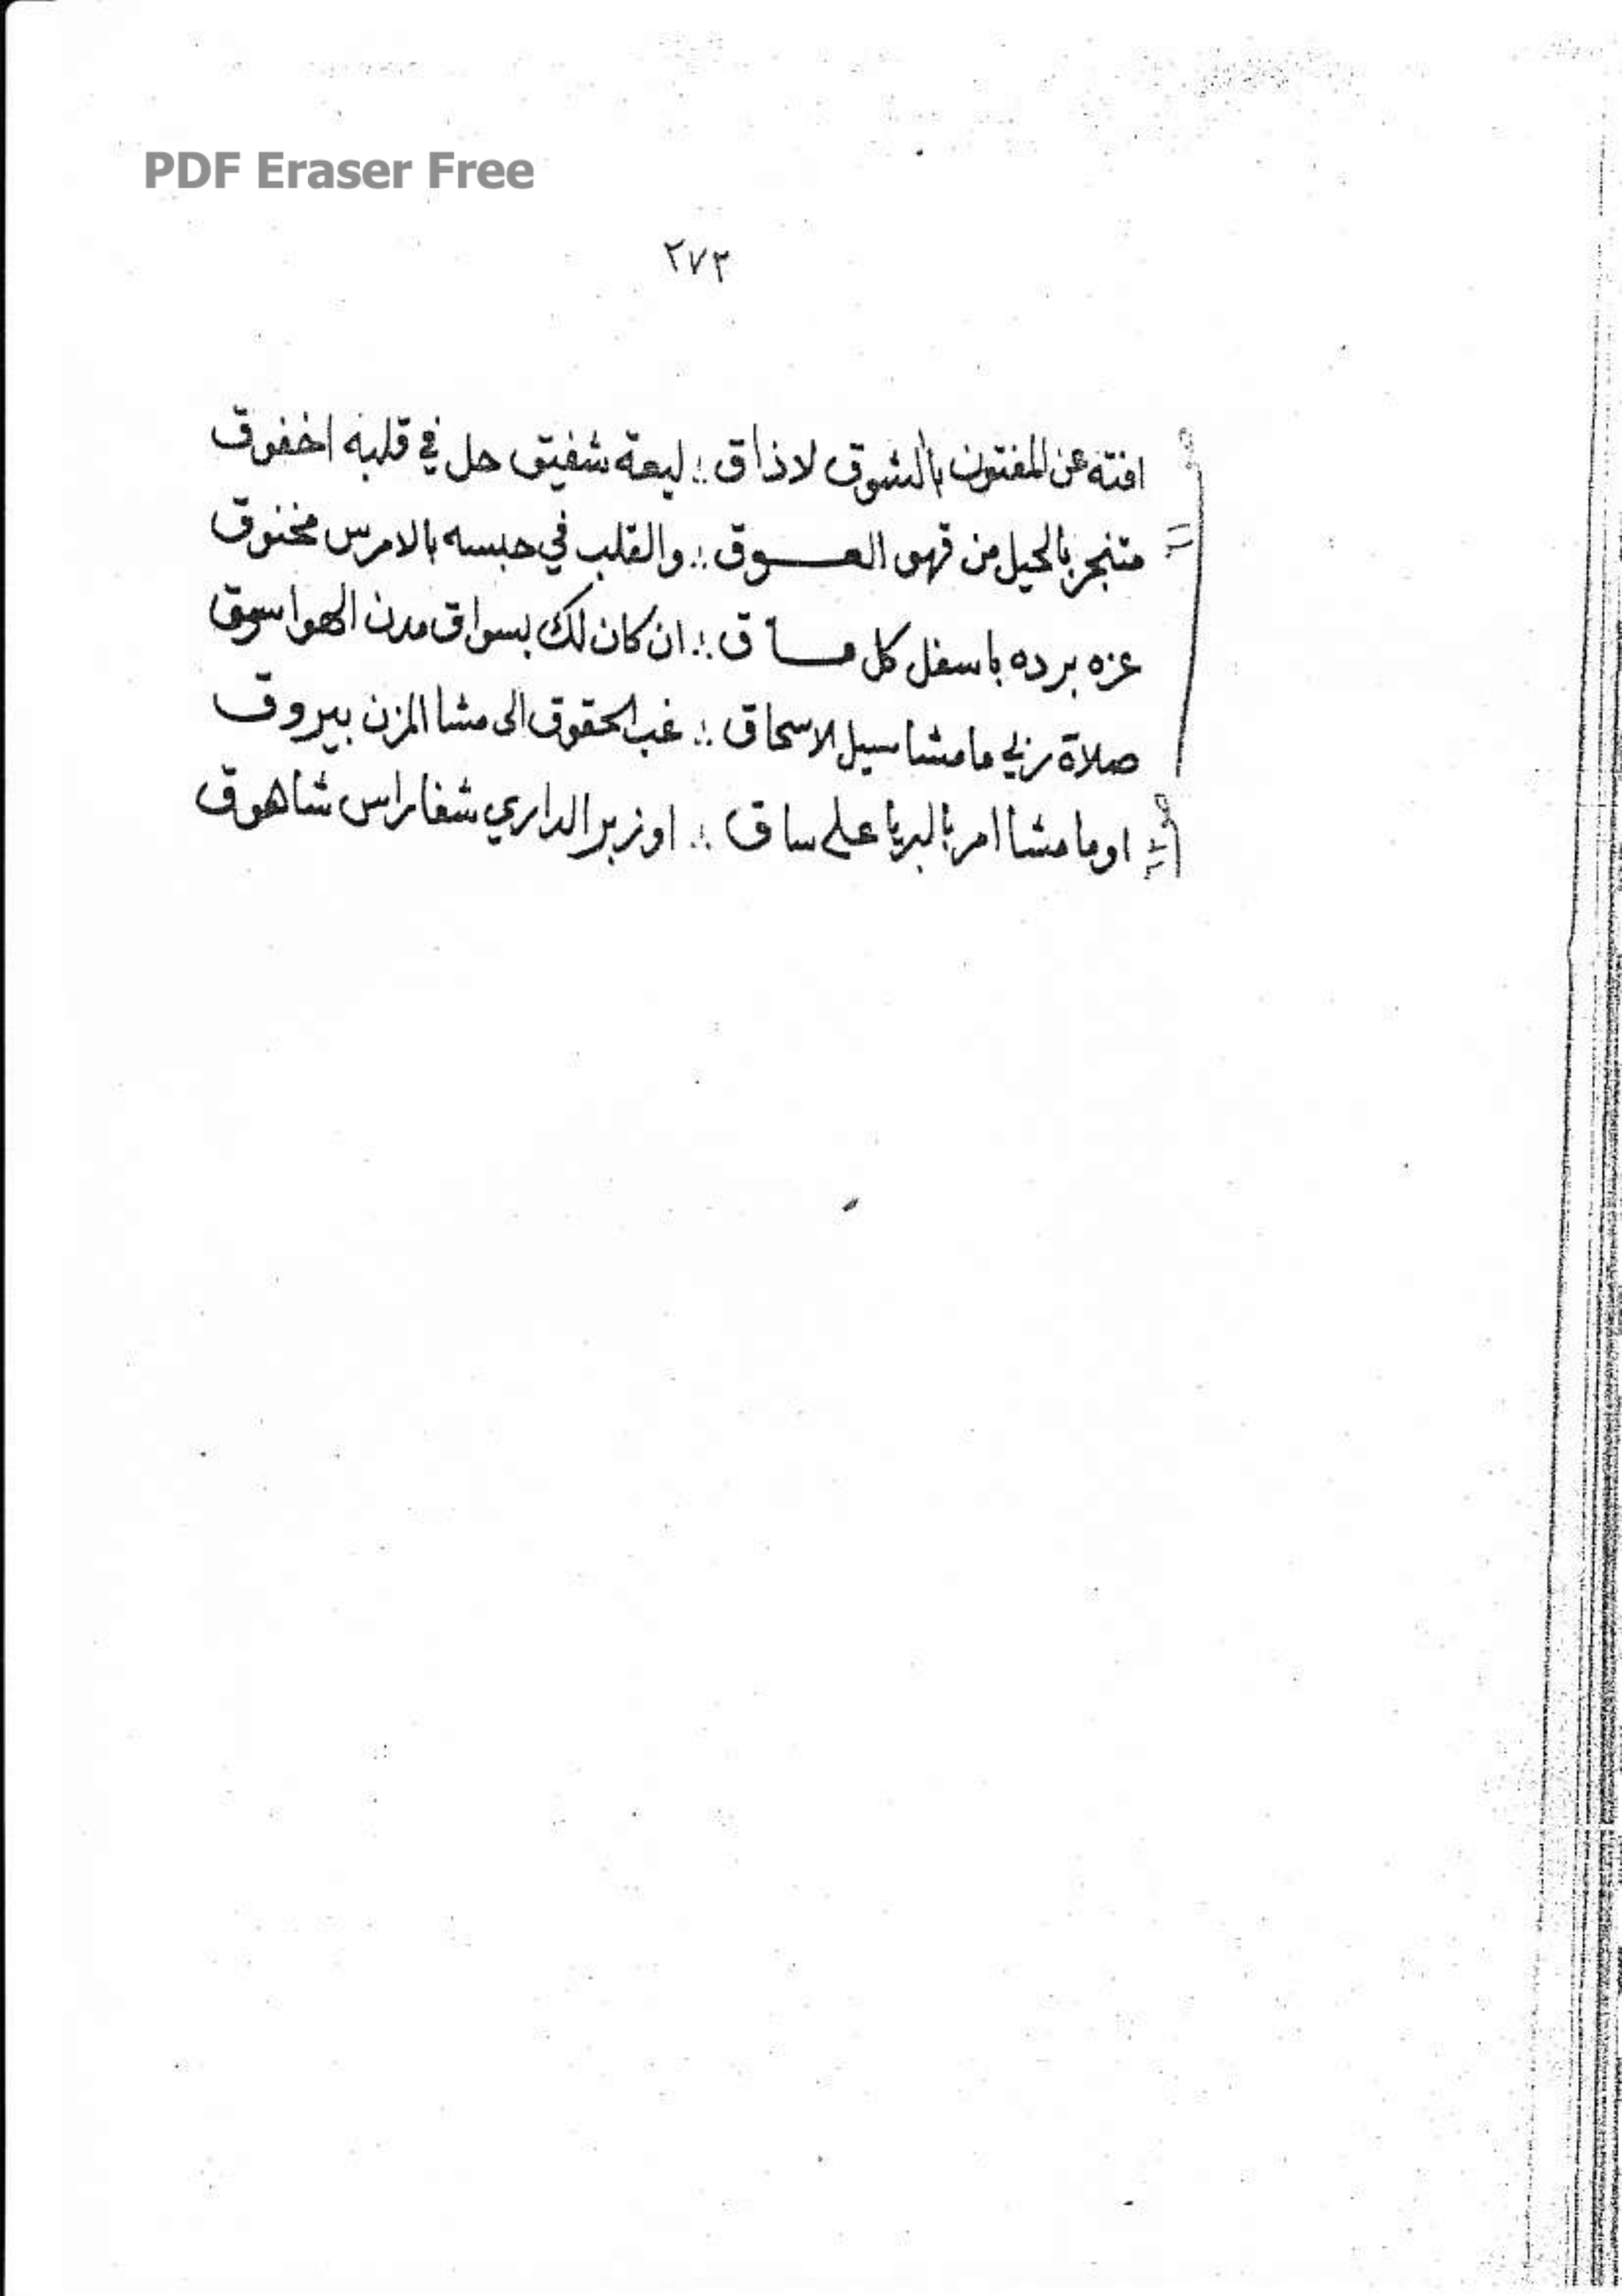 PDF Eraser Free
٢٧٣
افته عن المفتون بالشوق لا ذاق ؛ ليعة شفيق حل في قلبه اخفوق
متنجر بالحيل من قهى العــوق ؛ والقلب في حبسه بالامرس مخنوق
عزه برده باسفل كل مساق ؛ ان كان لك بسواق مدن الهوا سوق
صلاة ربي ما مشا سيل الاسحاق ؛ غب الحقوق الى مشا المزن بيروق
او ما مشا امر بالبريا على ساق ؛ اوزبر الداري شفا راس شاهوق